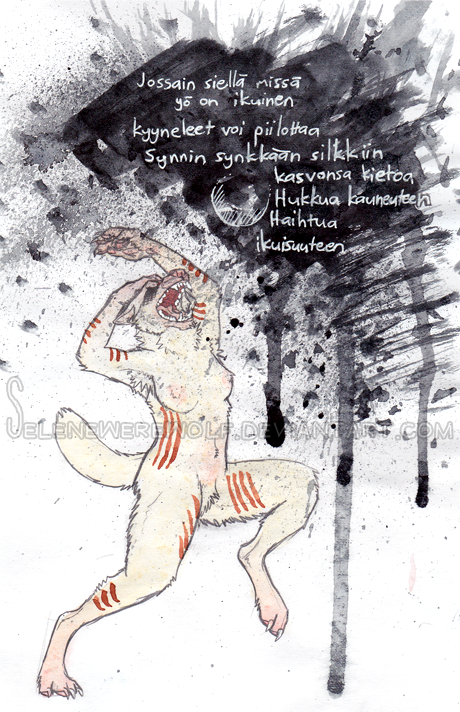 Jossain siellä missä
yö on ikuinen
kyyneleet voi piilottaa
Synnin synkkään silkkiin
kasvonsa kietoa
Hukkua kauneuteen
Haihtua
ikuisuuteen
SeleneWerewolf.deviantart.com